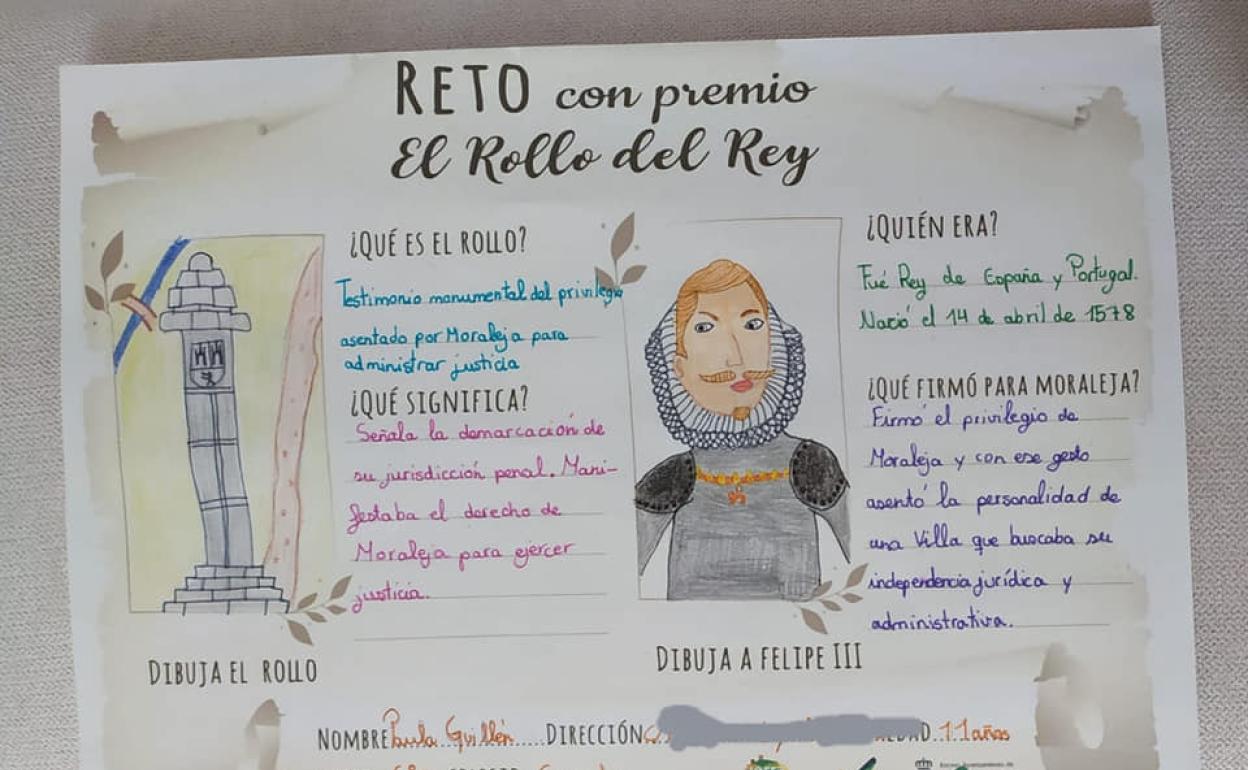 RETO con premio
El Rollo del Rey
¿QUÉ ES EL ROLLO?
Testimonio monumental del privilegio
asentado por Moraleja para
administrar justicia
¿QUÉ SIGNIFICA?
Señala la demarcación de
su jurisdicción penal. Mani-
festaba el derecho de
Moraleja para ejercer
justicia.
DIBUJA EL ROLLO
¿QUIÉN ERA?
Fué Rey de España y Portugal.
Nació el 14 de abril de 1578
¿QUÉ FIRMÓ PARA MORALEJA?
Firmó el privilegio de
Moraleja y con ese gesto
asentó la personalidad de
una Villa que buscaba su
independencia jurídica y
administrativa.
DIBUJA A FELIPE III
NOMBRE Paula Guillén DIRECCIÓN EDAD 11 años